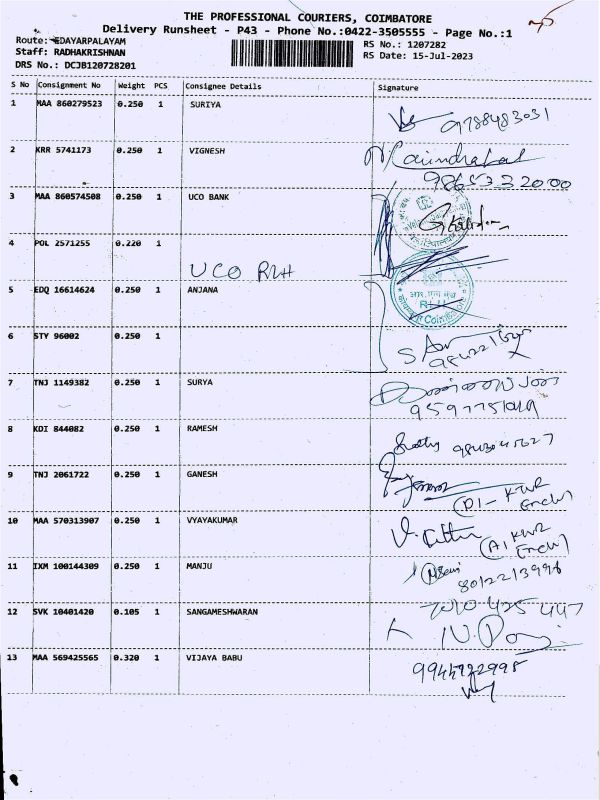 THE PROFESSIONAL COURIERS, COIMBATORE
Delivery Runsheet - P43 - Phone No.:0422-3505555 - Page No.:1
Route: EDAYARPALAYAM
RS No.: 1207282
Staff: RADHAKRISHNAN
RS Date: 15-Jul-2023
DRS No.: DCJB120728201
S No Consignment No Weight PCS Consignee Details Signature
1 MAA 860279523 0.250 1 SURIYA
9788483031
2 KRR 5741173 0.250 1 VIGNESH
9865332000
3 MAA 860574508 0.250 1 UCO BANK
4 POL 2571255 0.220 1
UCO RLH
5 EDQ 16614624 0.250 1 ANJANA
6 STY 96002 0.250 1
7 TNJ 1149382 0.250 1 SURYA
8 KDI 844082 0.250 1 RAMESH
9 TNJ 2061722 0.250 1 GANESH
10 MAA 570313907 0.250 1 VYAYAKUMAR
11 IXM 100144309 0.250 1 MANJU
8012213996
12 SVK 10401420 0.105 1 SANGAMESHWARAN
7010425447
13 MAA 569425565 0.320 1 VIJAYA BABU